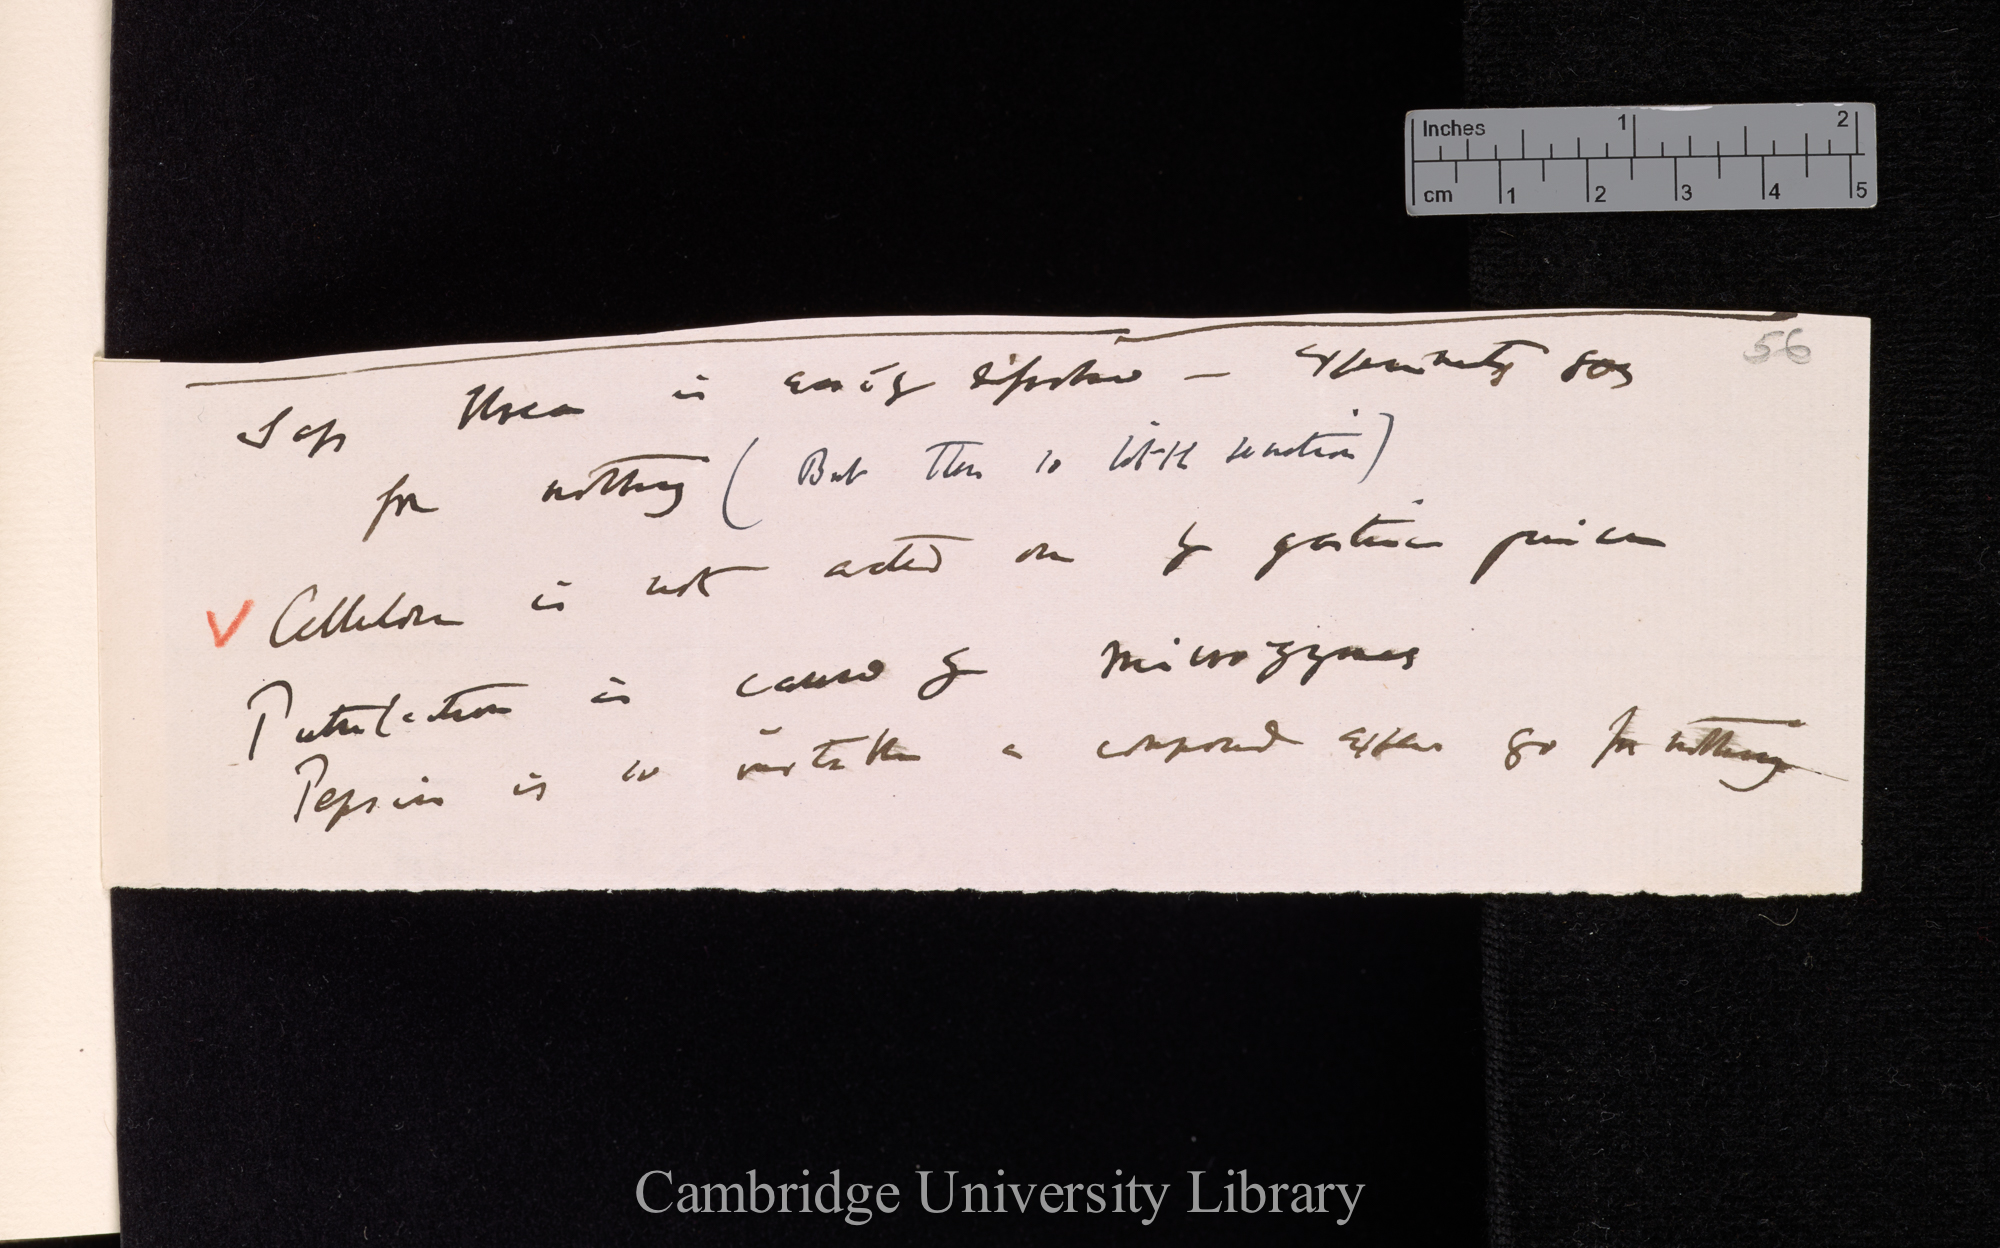 Inches 1 2
cm 1 2 3 4 5
56
Says Urea is easily — goes
for nothing (But then is little secretion)
V Cellulose is not acted on by gastric juice
Putrefaction is caused by microzymes
Pepsin is so unstable a compound go for nothing
Cambridge University Library